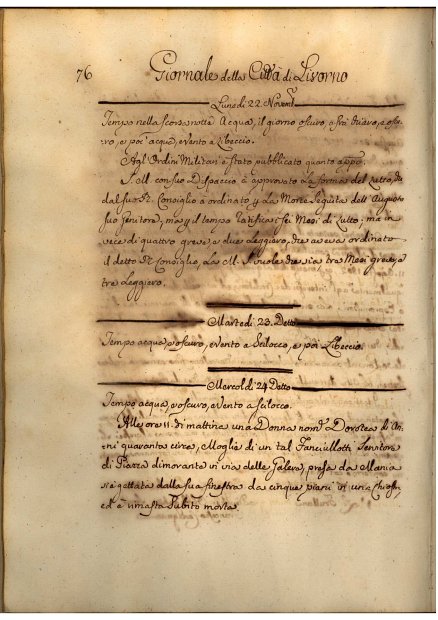 76 Giornale della Città di Livorno
Lunedì 22. Novemb.
Tempo nella scorsa notte Acqua, il giorno oscuro, e
e poi acqua, e vento a Libeccio.
Agl'Ordini Militari è stato pubblicato quanto appo.
S. M. con suo Dispaccio à approvato La forma del Lutto, che
dal suo R. Consiglio à ordinato p La Morte Seguita dell'Augusto
suo Genitore, ma p il tempo ratifica i sei Mesi di Lutto, ma in
vece di quattro greve e due Leggiero, che aveva ordinato
il detto R. Consiglio, La M. S. vuole che sia, tre Mesi greve, e
tre Leggiero.
Martedì 23. Detto
Tempo acqua, e oscuro, e vento a Scilocco, e poi Libeccio.
Mercoldì 24 Detto
Tempo acqua, e oscuro, e vento a scilocco.
Alle ore 11. di mattina una Donna nom. Dorotea di An-
ni quaranta circa, Moglie di un tal Fanciullotti Servitore
di Piazza dimorante in via delle Galere, presa da Mania
si è gettata dalla sua finestra da cinque piani in una Chiostr
ed è rimasta subito morta.